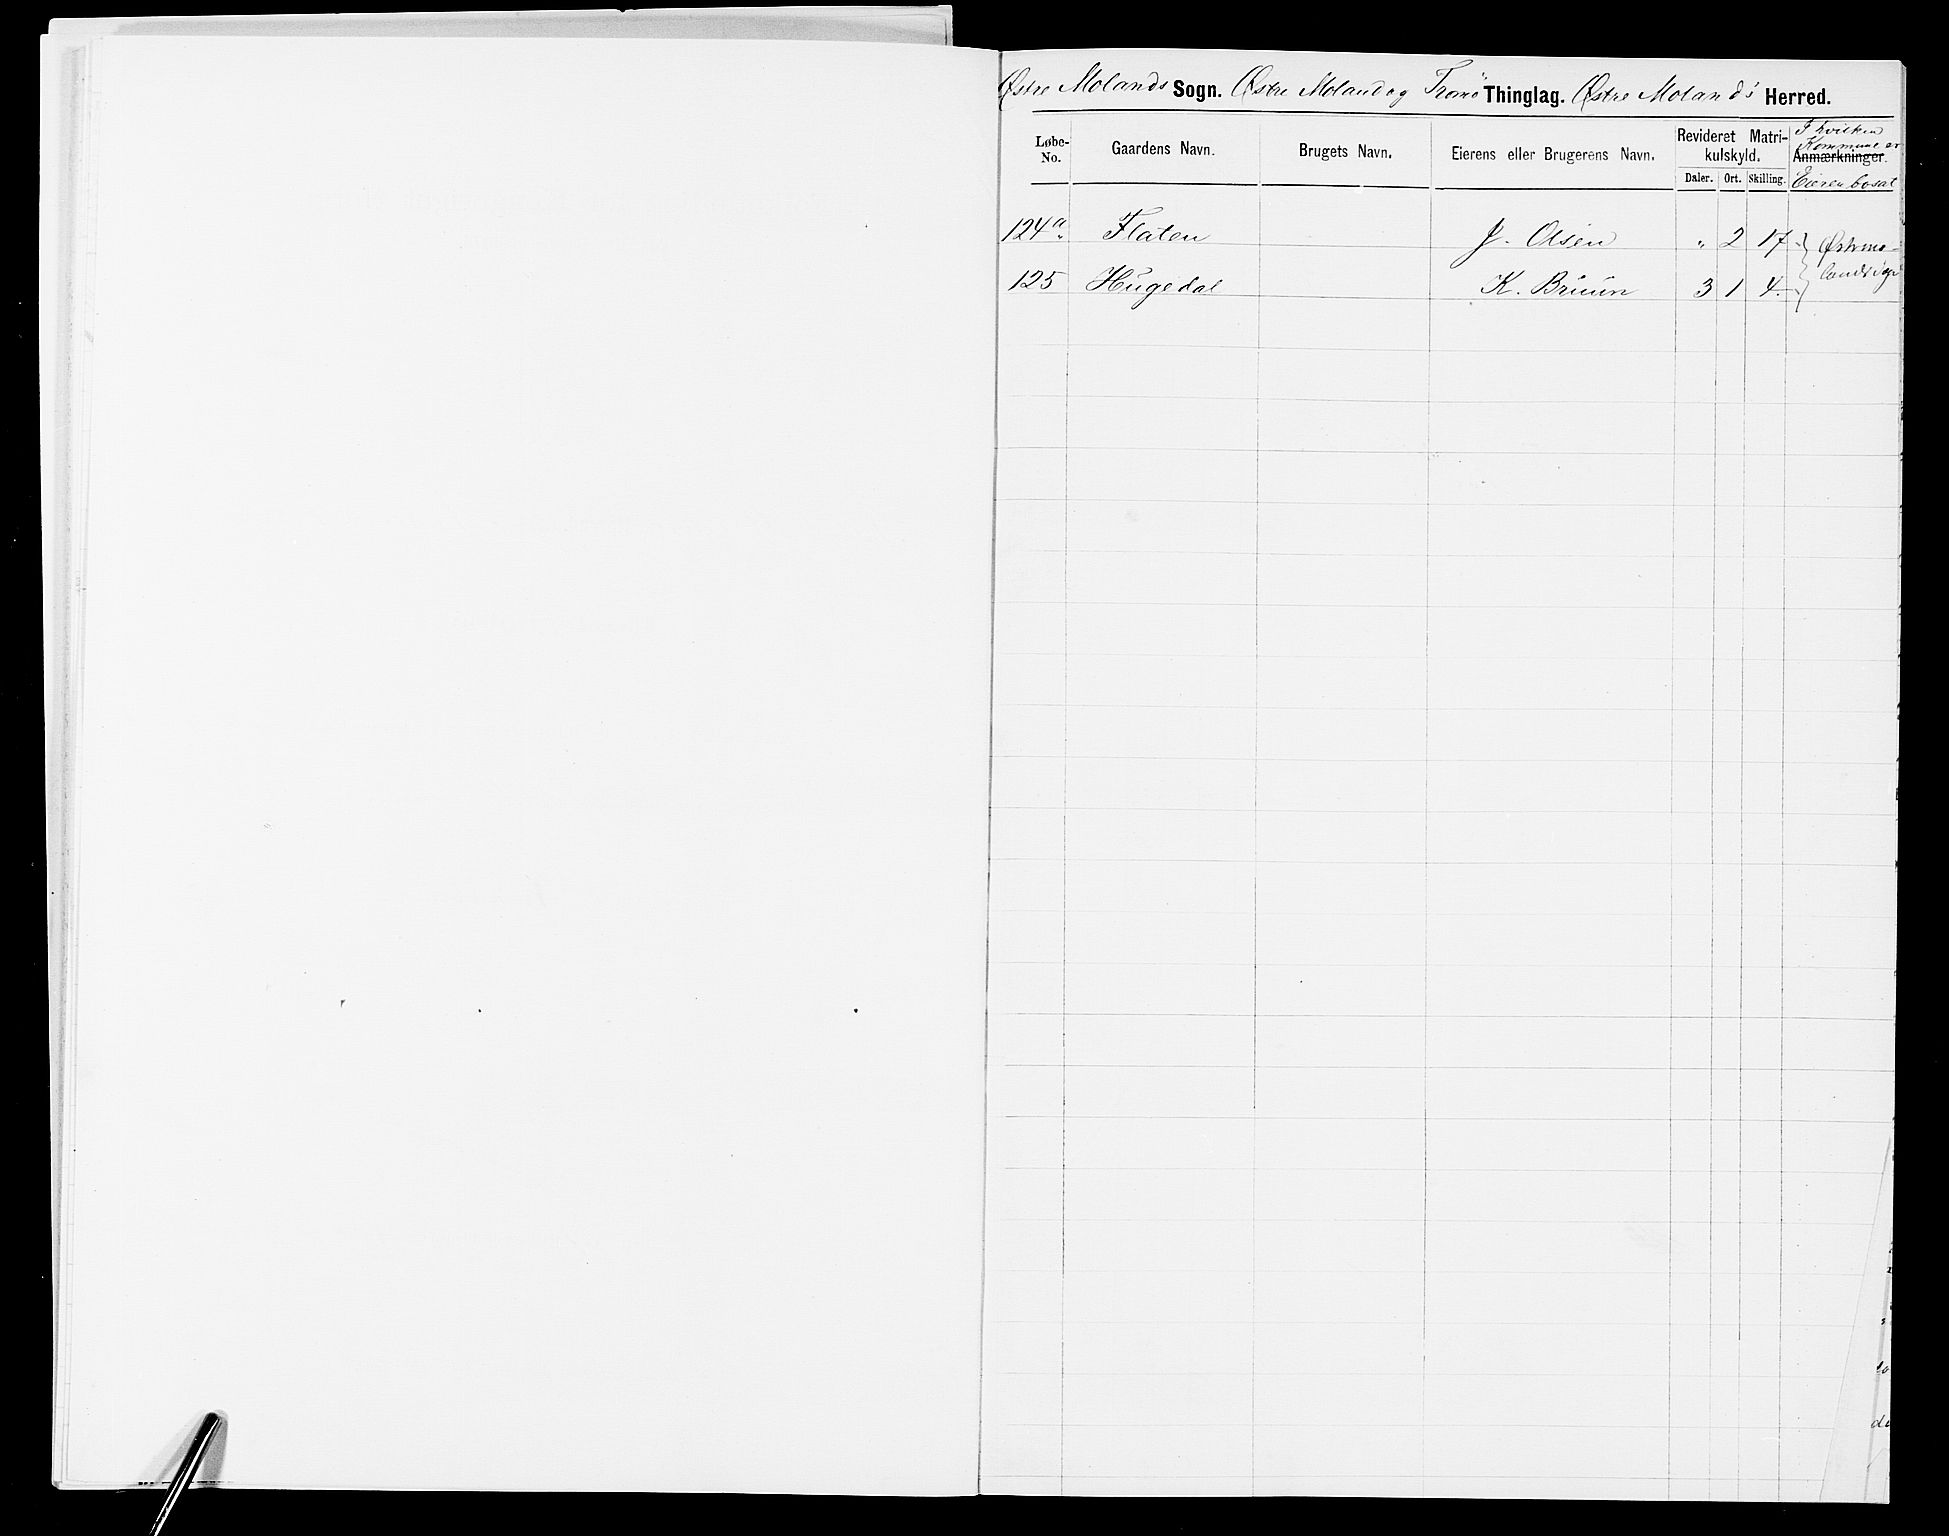 Østre Molands Sogn. Østre Moland og Tromö Thinglag. Østre Molands Herred.
Løbe-No. Gaardens Navn. Brugets Navn. Eierens eller Brugerens Navn. Revideret Matri-kulskyld. I hvilken Kommune er
Anmærkninger.
Daler. Ort. Skilling. Eieren bosat
124 a. Flaten J. Olsen " 2 17
125 Hugedal K. Bruun 3 1 4.